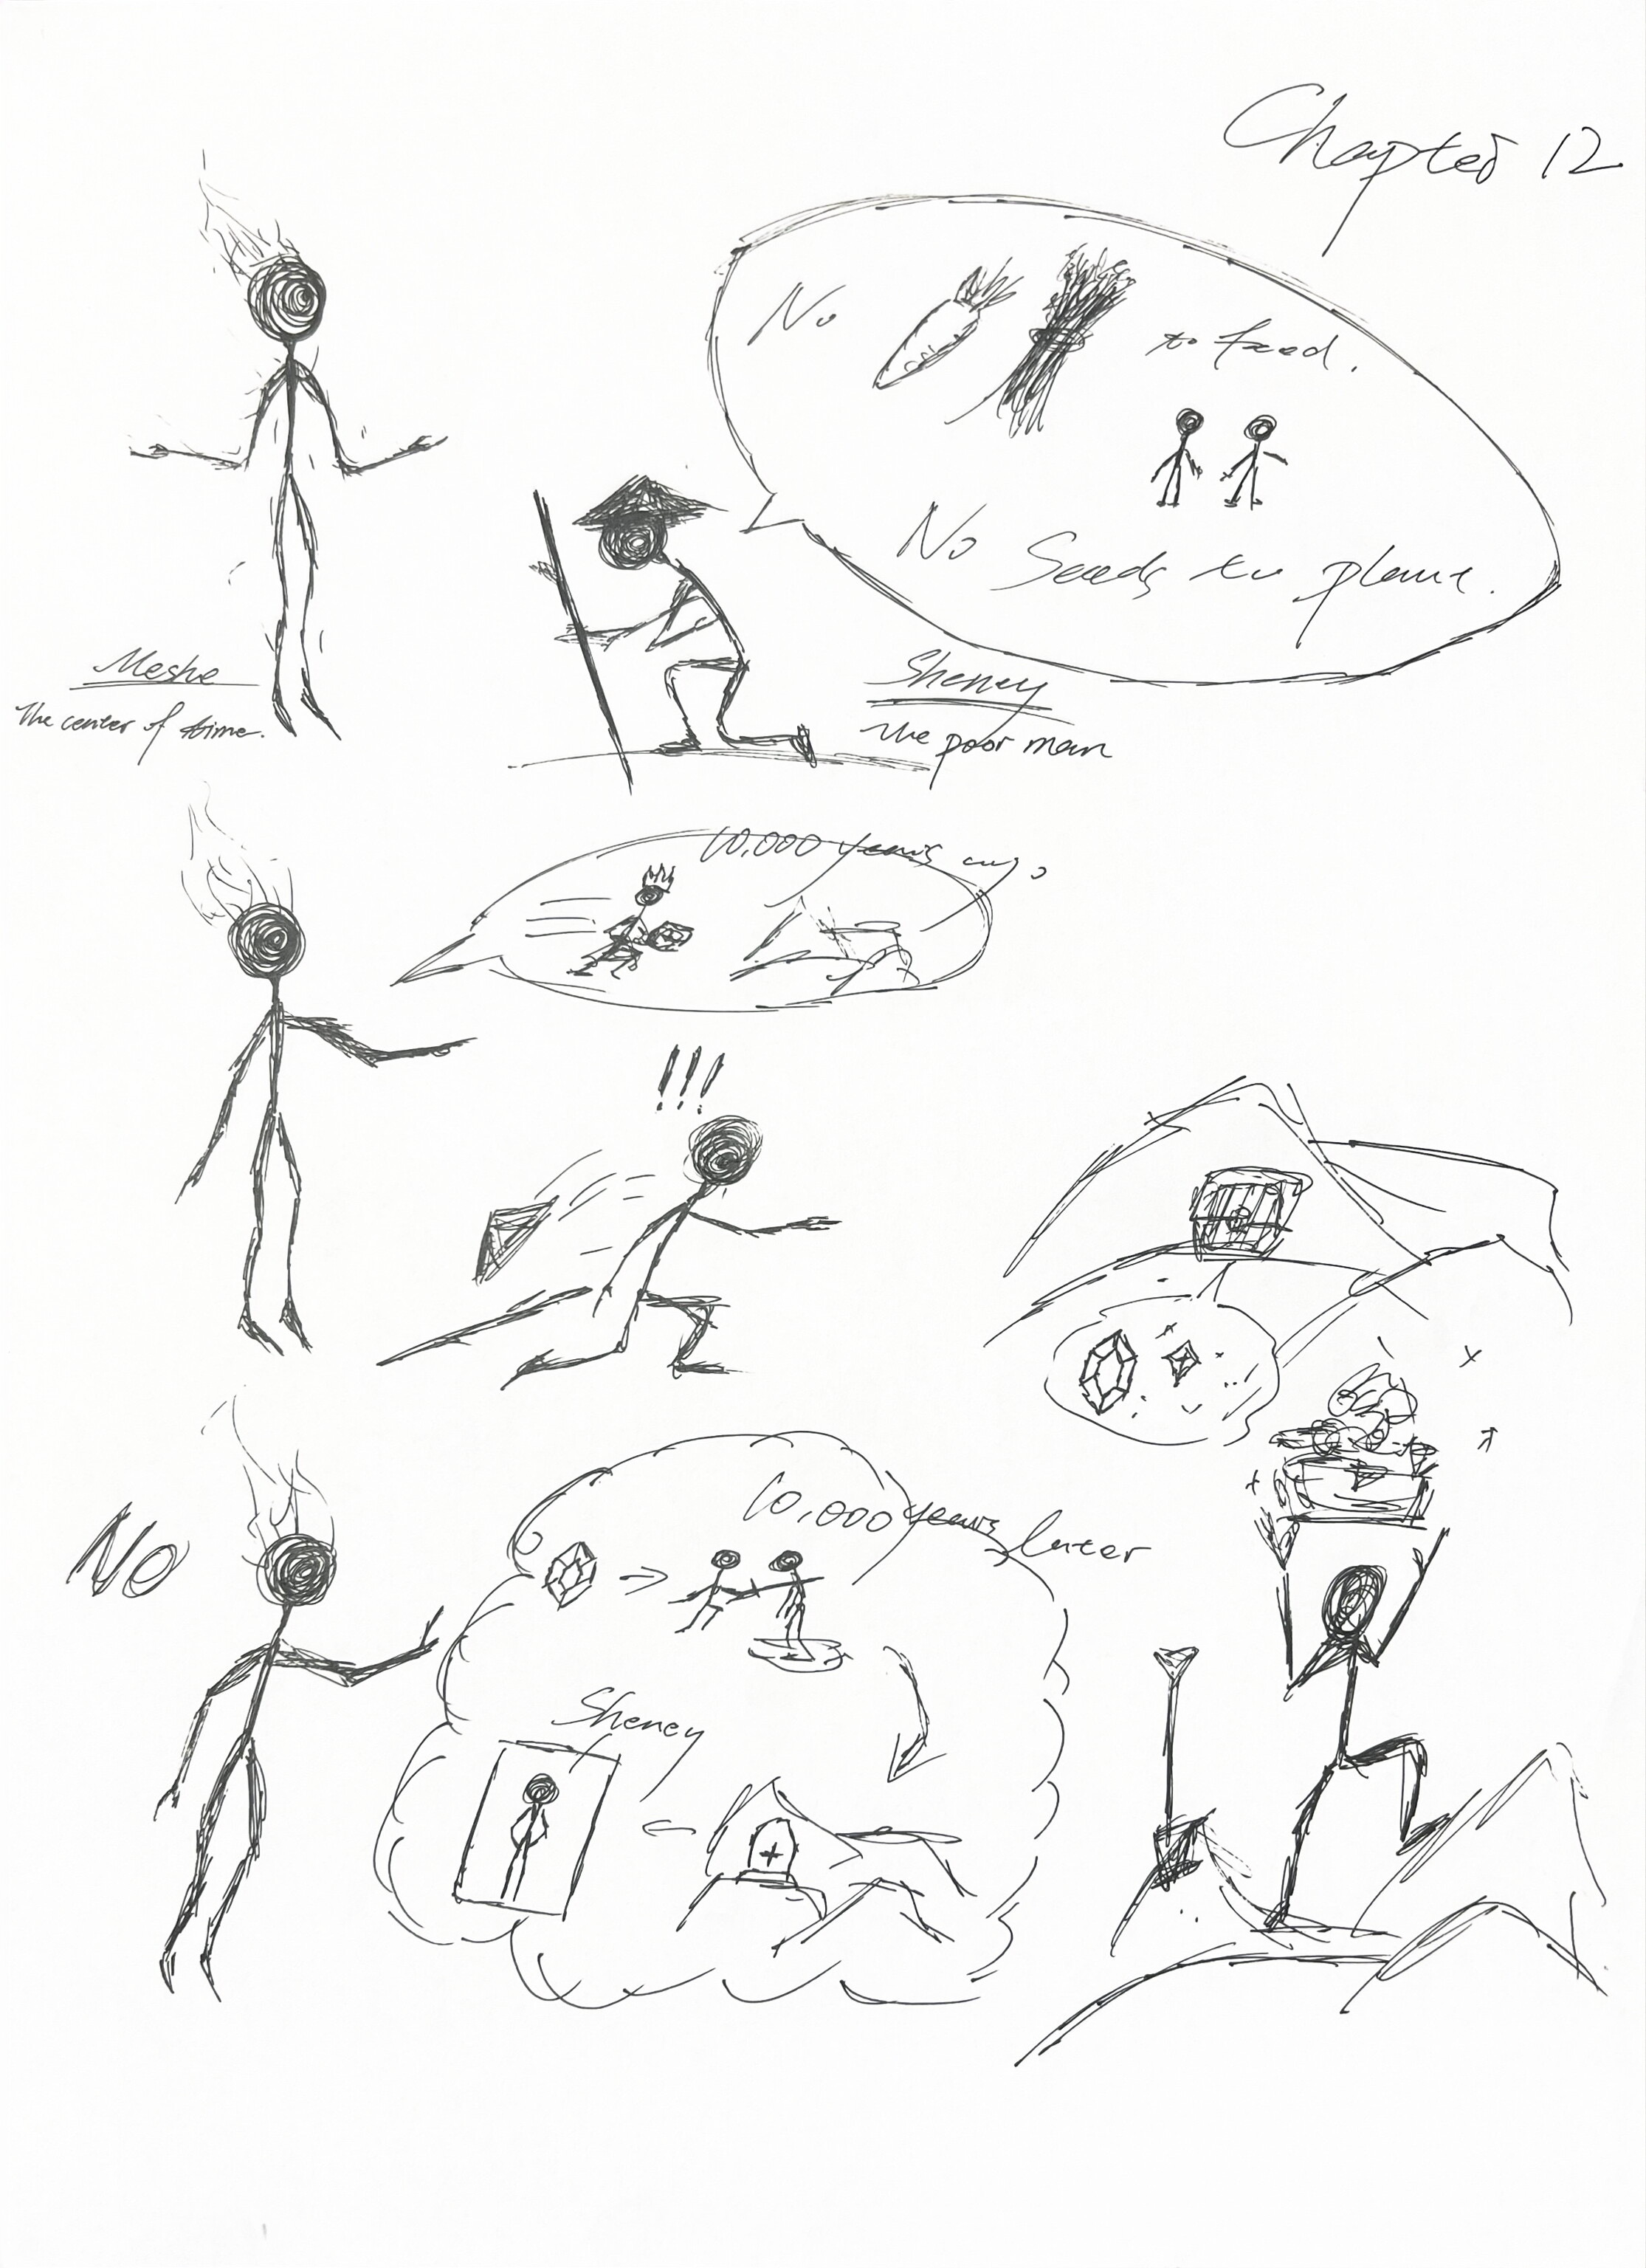 Chapter 12
No to feed.
No Seeds to plant.
Meshe
The center of time.
Sheney
The poor man
10,000 years ago
!!!
No
10,000 years later
Sheney